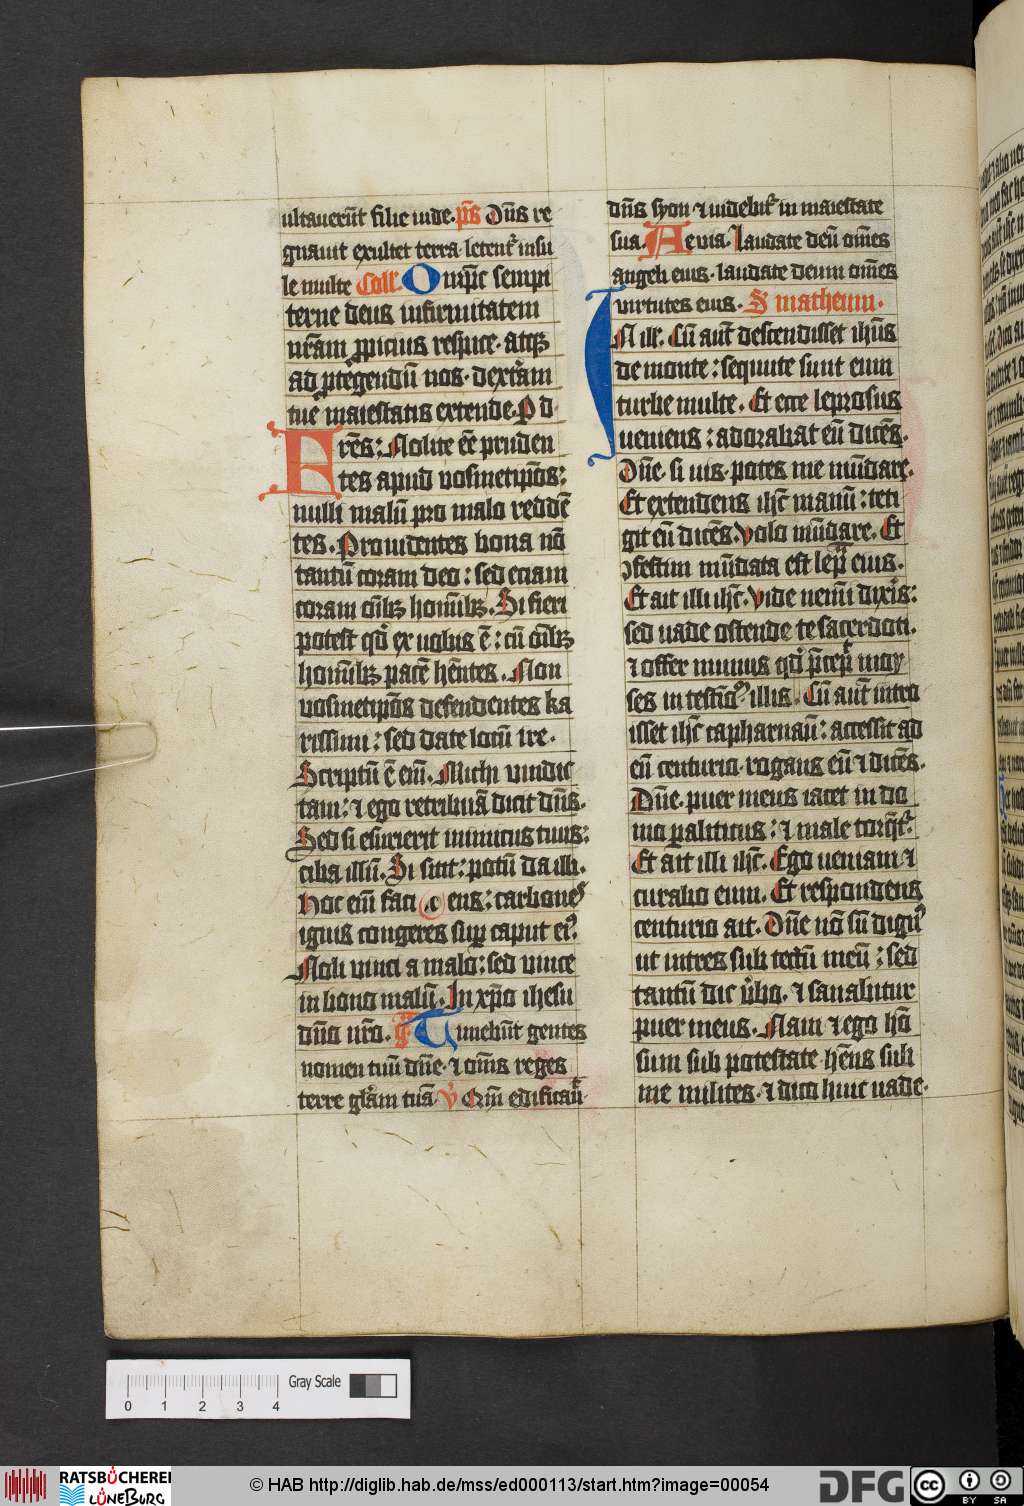 ultauerūt filie iude. p̄s Dn̄s re
gnauit exultet terra letent᷑ insu
le multe Coll᷑. Om̄ps sempi
terne deus infirmitatem
nr̄am ꝓpicius respice. atqꝫ
ad ꝓtegendū nos. dext̄am
tue maiestatis extende. P d.
Fr̄es: Nolite eē pruden
tes apud vosmetip̄os:
nulli malū pro malo reddē
tes. Prouidentes bona nō
tantū coram deo: sed eciam
coram om̄ibꝫ homībꝫ. Si fieri
potest qd̄ ex uobis ē: cū om̄ibꝫ
homībꝫ pacē hn̄tes. Non
vosmetip̄os defendentes ka
rissimi: sed date locū ire.
Scriptū ē em̄. Michi vindic
tam: ⁊ ego retribuā dicit dn̄s.
Sed si esurierit inimicus tuus:
ciba illū. Si sitit: potū da illi.
Hoc em̄ faci .c ens: carbones
ignis congeres suꝑ caput eiꝰ.
Noli vinci a malo: sed vince
in bono malū. In xp̄o ihesu
dn̄o nr̄o. g̃ Timebūt gentes
nomen tuū dn̄e. ⁊ om̄s reges
terre gl̄am tuā v̄ Qm̄ edificau̅
dn̄s syon ⁊ uidebit᷑ in maiestate
sua. Aeuia. Laudate deū om̄es
angeli eius. laudate deum om̄es
virtutes eius. S matheum.
IN ill᷑. Cū aut̄ descendisset ihūs
de monte: sequute sunt eum
turbe multe. Et ecce leprosus
ueniens: adorabat eū dicēs.
Dn̄e. si uis. potes me mūdare.
Et extendens ihc̄ manū: teti
git eū dicēs. Volo mūdare. Et
ꝯfestim mūdata est lepᷓ eius.
Et ait illi ihc̄. Vide nemī dixis:
sed uade ostende te sacerdoti.
⁊ offer munus qd̄ p̄cepᷓ moy
ses in testīoꝰ illis. Cū aut̄ intro
isset ihc̄ capharnaū: accessit ad
eū centurio. rogans eū ⁊ dicēs.
Dn̄e. puer meus iacet in do
mo paliticus: ⁊ male torq̄t᷑.
Et ait illi ihc̄. Ego ueniam ⁊
curabo eum. Et respondens
centurio ait. Dn̄e nō sū dignꝰ
ut intres sub tectū meū: sed
tantū dic ūbo. ⁊ sanabitur
puer meus. Nam ⁊ ego hō
sum sub potestate hn̄s sub
me milites. ⁊ dico huic uade.
Gray Scale
0 1 2 3 4
RATSBÜCHEREI
LÜNEBURG
© HAB http://diglib.hab.de/mss/ed000113/start.htm?image=00054
DFG
cc BY SA